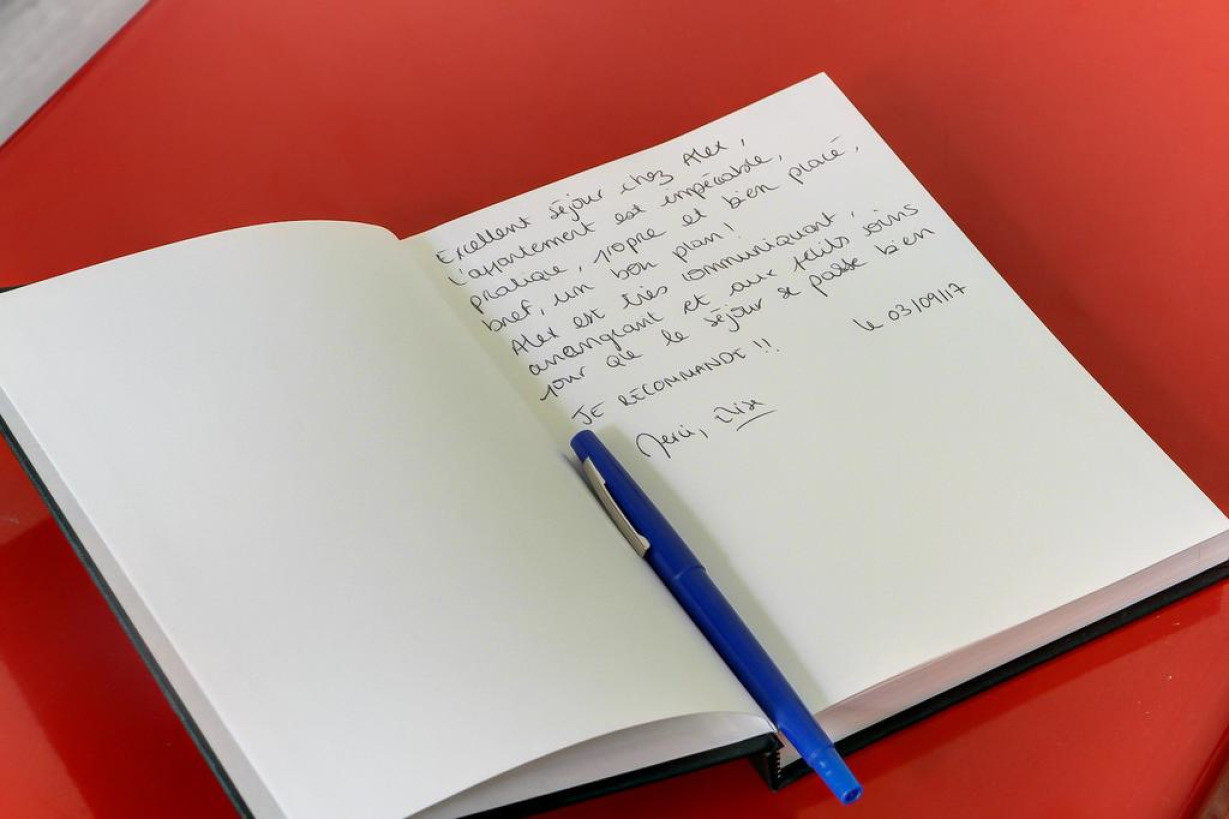 Excellent séjour chez Alex,
l'appartement est impécable,
pratique, propre et bien placé,
bref, un bon plan!
Alex est très communiquant,
arrangeant et aux petits soins
pour que le séjour se passe bien
le 03/09/17
JE RECOMMANDE !!
Merci, Elise